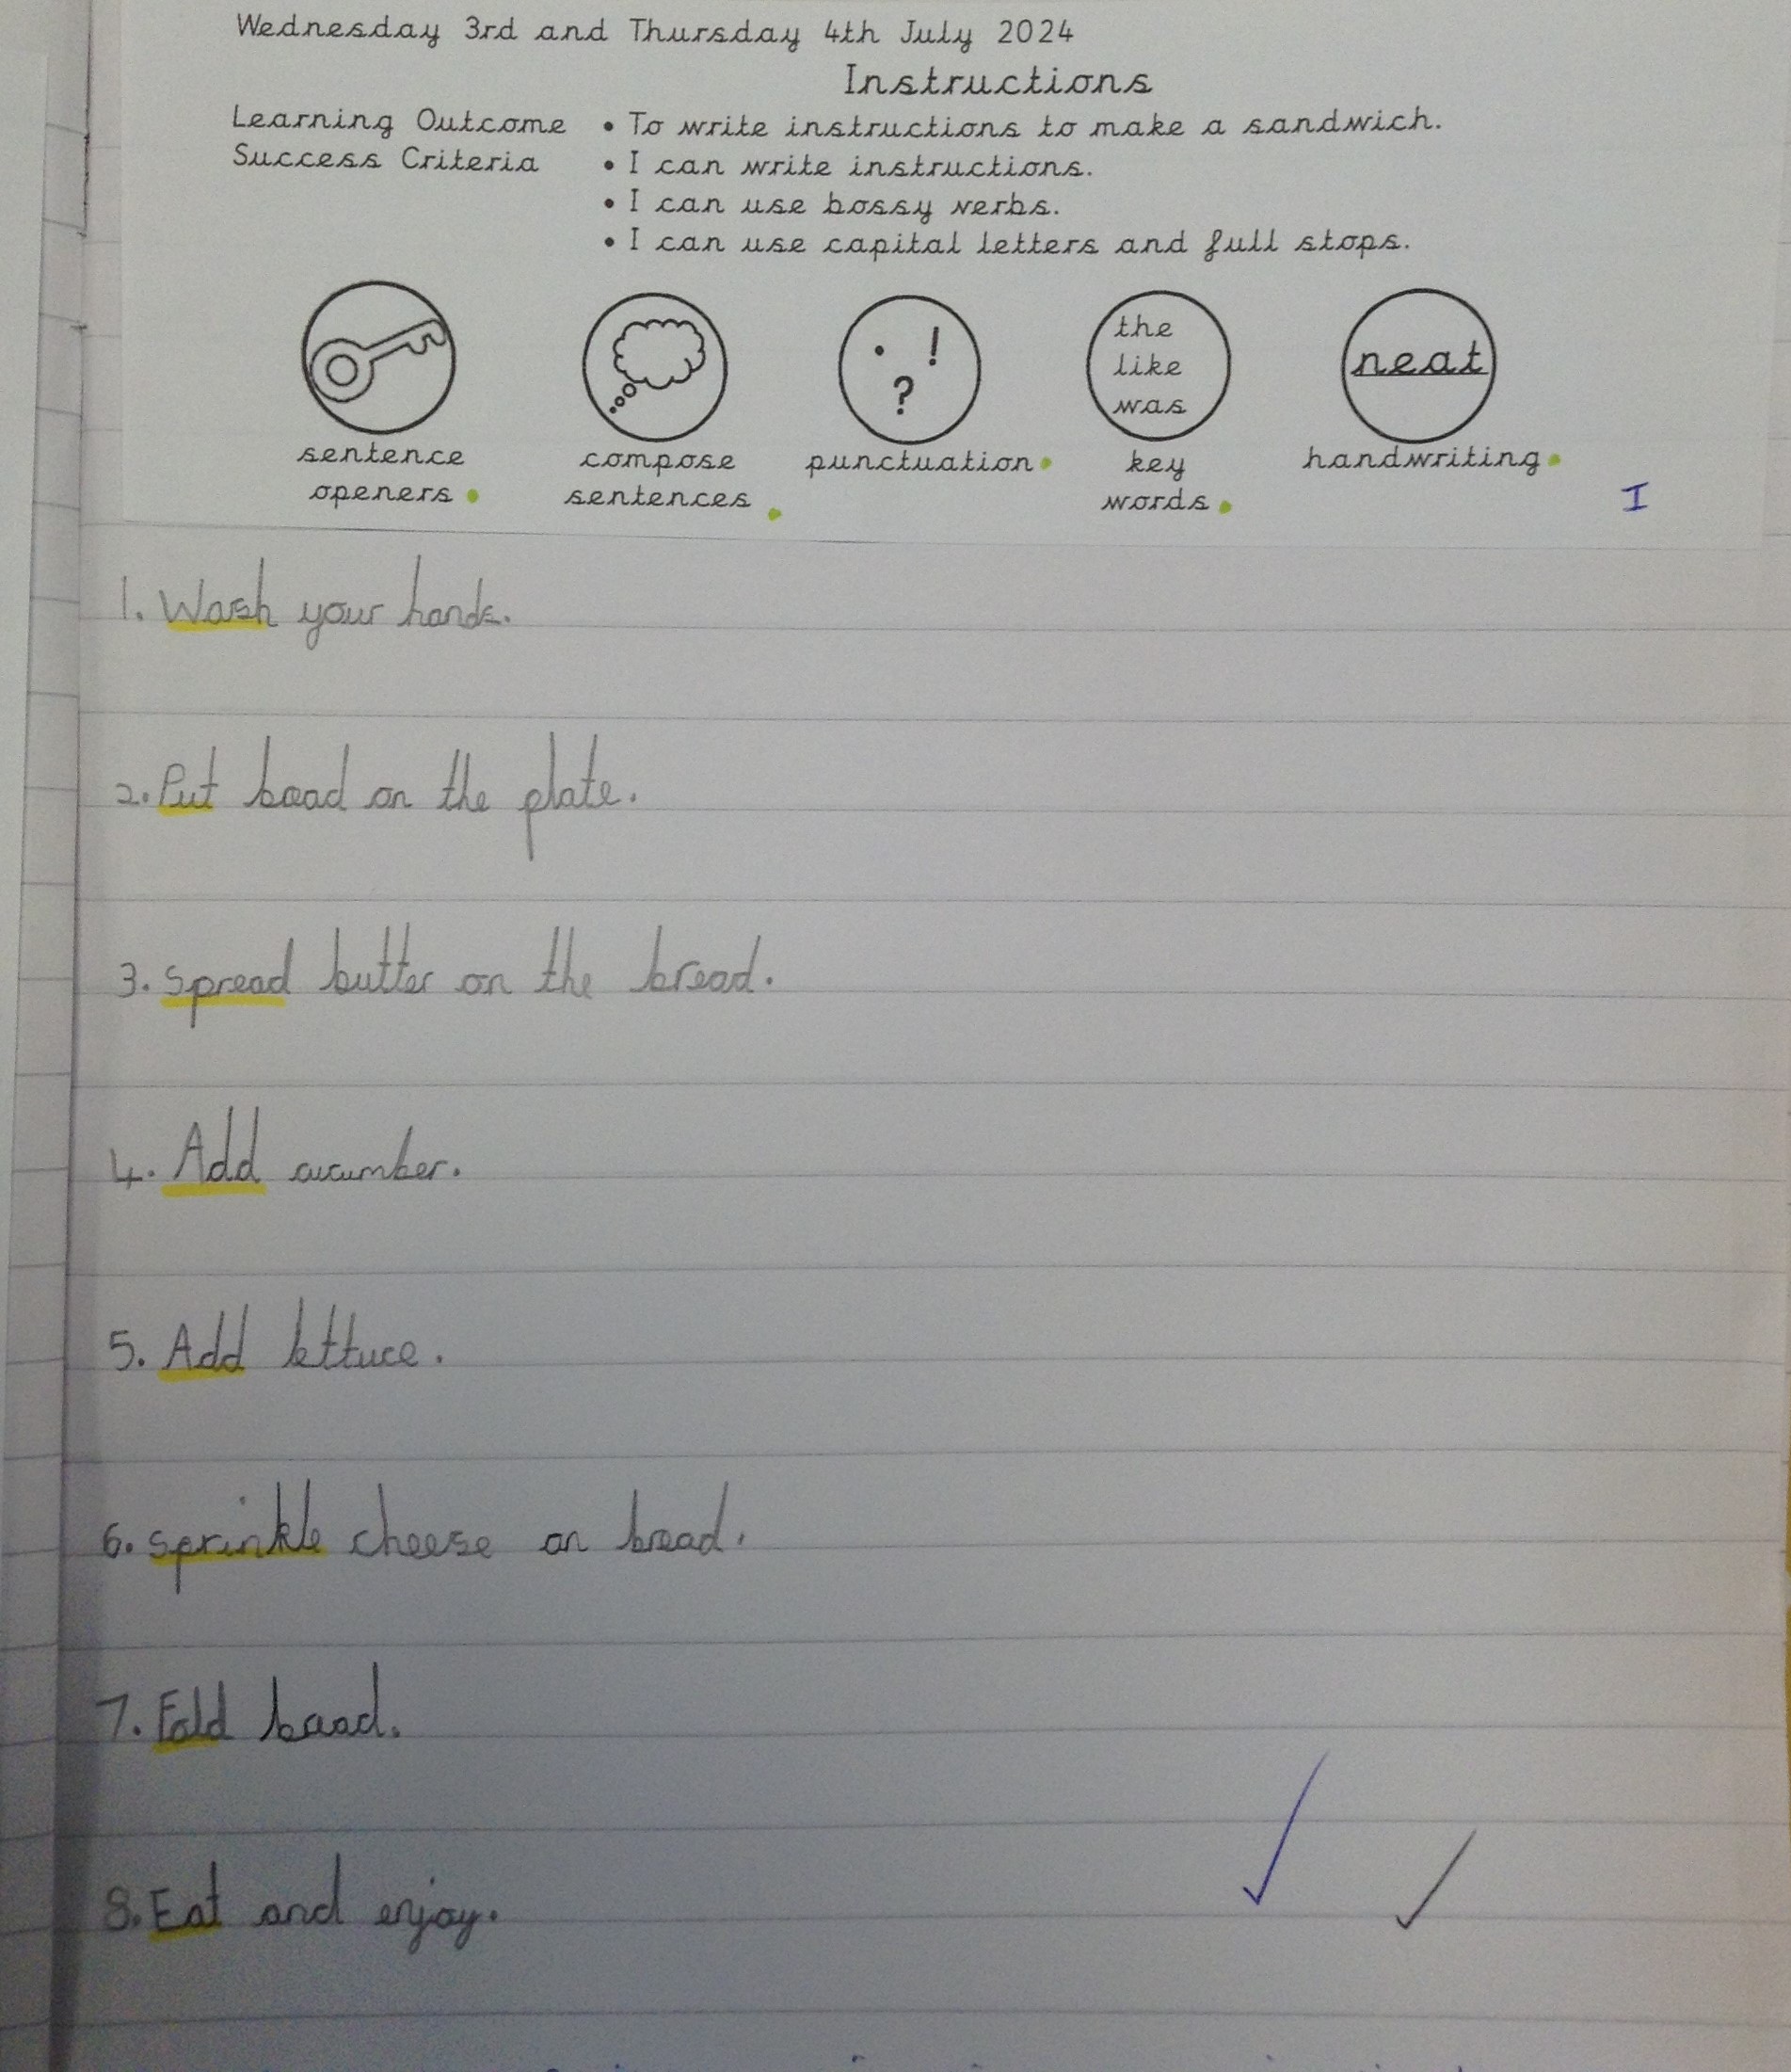 Wednesday 3rd and Thursday 4th July 2024
Instructions
Learning Outcome • To write instructions to make a sandwich.
Success Criteria • I can write instructions.
• I can use bossy verbs.
• I can use capital letters and full stops.
the
like
was
neat
. !
?
sentence openers
compose sentences
punctuation
key words
handwriting
I
1. Wash your hands.
2. Put bread on the plate.
3. Spread butter on the bread.
4. Add cucumber.
5. Add lettuce.
6. Sprinkle cheese on bread.
7. Fold bread.
8. Eat and enjoy.